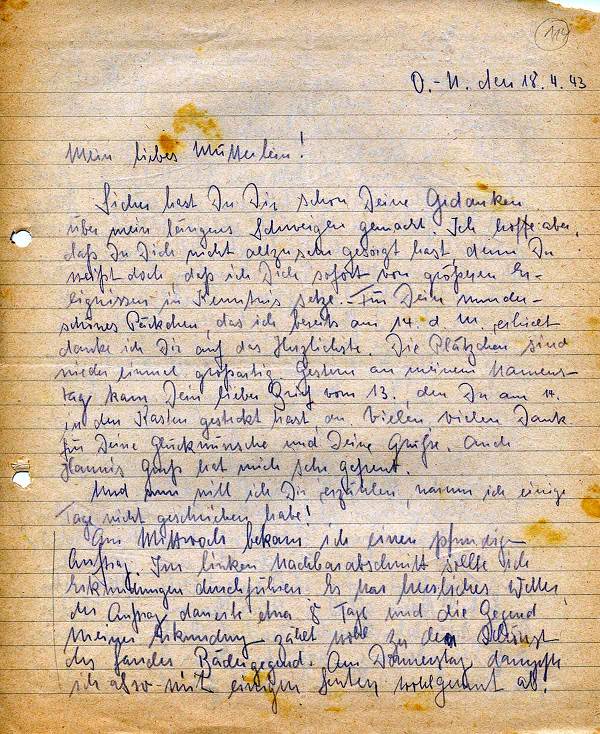 114
O.-U. den 18.4.43
Mein liebes Mütterlein!
Sicher hast Du Dir schon Deine Gedanken
über mein längeres Schweigen gemacht. Ich hoffe aber,
daß Du Dich nicht allzu sehr gesorgt hast, denn Du
weißt doch, daß ich Dich sofort von größeren Er-
eignissen in Kenntnis setze. – Für Dein wunder-
schönes Päckchen, das ich bereits am 14. d. M. erhielt
danke ich Dir auf das Herzlichste. Die Plätzchen sind
wieder einmal großartig. Gestern an meinem Namens-
tage kam Dein lieber Brief vom 13. den Du am 14.
in den Kasten gesteckt hast, an. Vielen, vielen Dank
für Deine Glückwünsche und Deine Grüße. Auch
Hannis Gruß hat mich sehr gefreut.
Und nun will ich Dir erzählen, warum ich einige
Tage nicht geschrieben habe!
Am Mittwoch bekam ich einen pfundigen
Auftrag. Im linken Nachbarabschnitt sollte ich
Erkundungen durchführen. Es war herrliches Wetter,
der Auftrag dauerte etwa Tage und die Gegend
meiner Erkundung zählt wohl zu den
des Landes. Am Donnerstag dampfte
ich also mit einigen Leuten wohlgemut ab.